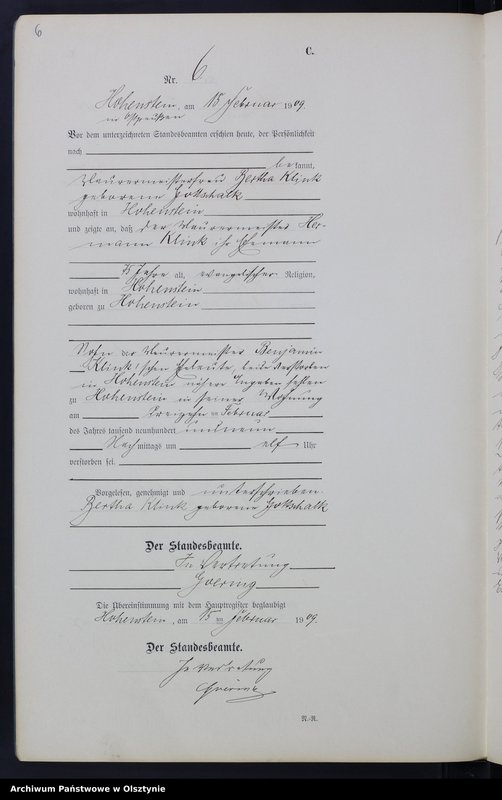 6
C.
Nr. 6
Hohenstein, am 15 Februar 1909.
in Ostpreußen
Vor dem unterzeichneten Standesbeamten erschien heute, der Persönlichkeit
nach
bekannt,
Maurermeisterfrau Bertha Klink
geborene Gottschalk
wohnhaft in Hohenstein
und zeigte an, daß der Maurermeister Her-
mann Klink ihr Ehemann
75 Jahre alt, evangelischer Religion,
wohnhaft in Hohenstein
geboren zu Hohenstein
Sohn der Maurermeister Benjamin
Klink'schen Eheleute, beide verstorben
in Hohenstein nähere Angaben fehlen
zu Hohenstein in seiner Wohnung
am dreizehn ten Februar
des Jahres tausend neunhundert und neun
Nachmittags um elf Uhr
verstorben sei.
Vorgelesen, genehmigt und unterschrieben
Bertha Klink geborene Gottschalk
Der Standesbeamte.
In Vertretung
Die Übereinstimmung mit dem Hauptregister beglaubigt
Hohenstein, am 15 ten Februar 1909.
Der Standesbeamte.
In Vertretung
N.-R.
Archiwum Państwowe w Olsztynie